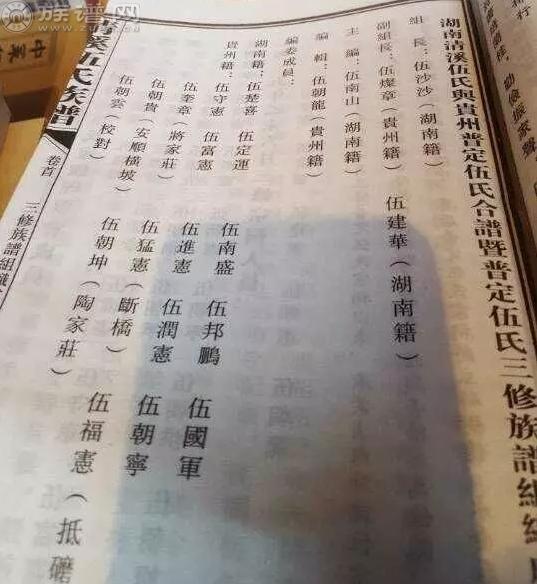 湖南清溪伍氏與貴州普定伍氏合譜暨普定伍氏三修族譜
組　長：伍沙沙（湖南籍）
副組長：伍燦章（貴州籍）　伍建華（湖南籍）
主　編：伍南山（湖南籍）
編　輯：伍朝龍（貴州籍）
編委成員：
湖南籍：伍楚喜　伍定運　伍南盛　伍邦鵬　伍國軍
貴州籍：伍守憲　伍富憲　伍進憲　伍潤憲　伍朝寧
伍奎章（將家莊）　伍猛憲（斷橋）　伍福憲（抵
伍朝貴（安順橫坡）　伍朝坤（陶家莊）
伍朝雲（校對）
清溪伍氏族譜
卷首
三修族譜組織
族譜网